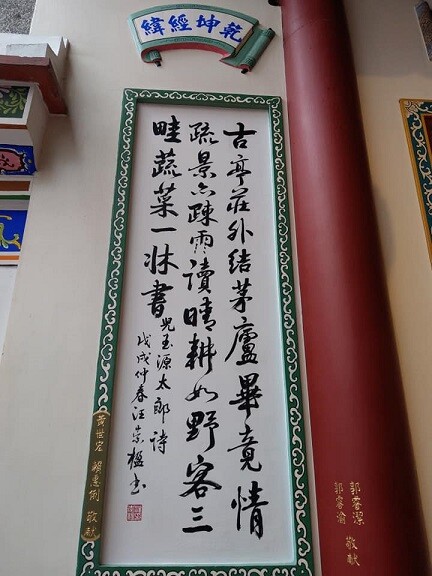 乾坤經緯
古亭莊外結茅廬畢竟情
疏景亦疎雨讀晴耕如野客三
畦蔬菜一牀書
兒玉源太郎詩
戊戌仲春汪崇楹书
黃世宏 賴惠俐 敬献
郭睿潔
郭睿渝
敬献